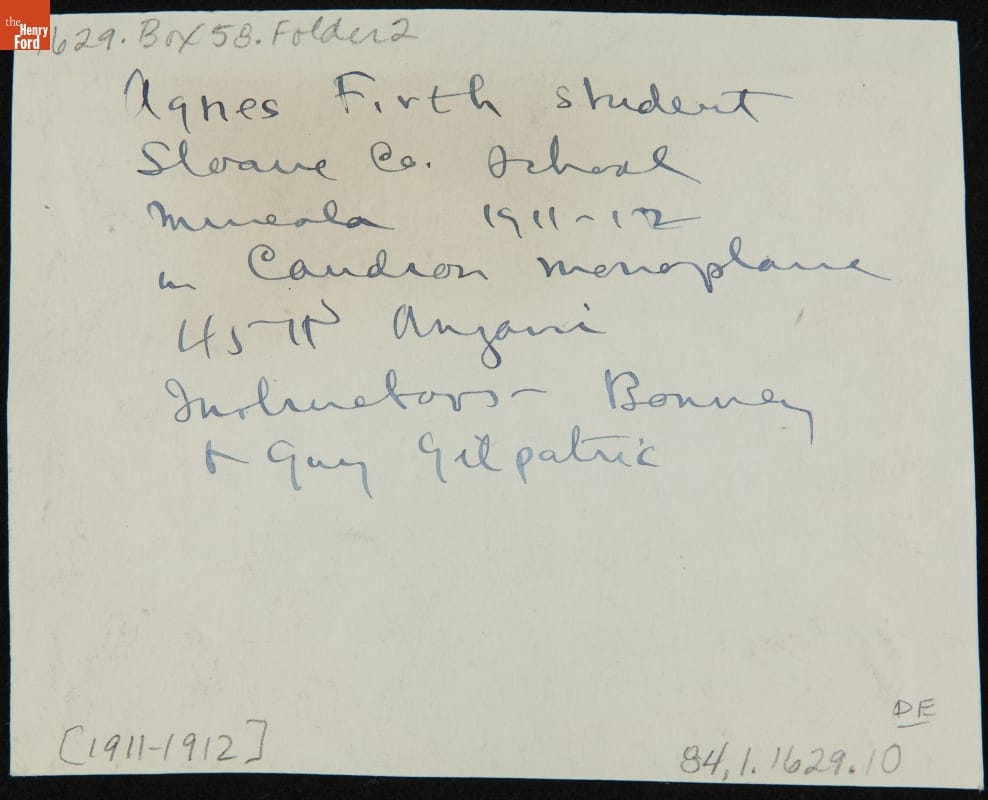 the Henry Ford
1629.Box58.Folder2
Agnes Firth student
Sloane Co. School
Mineola 1911-12
in Caudron monoplane
45 HP Anzani
Instructors - Bonney
+ Guy Gilpatric
DE
[1911-1912]
84.1.1629.10